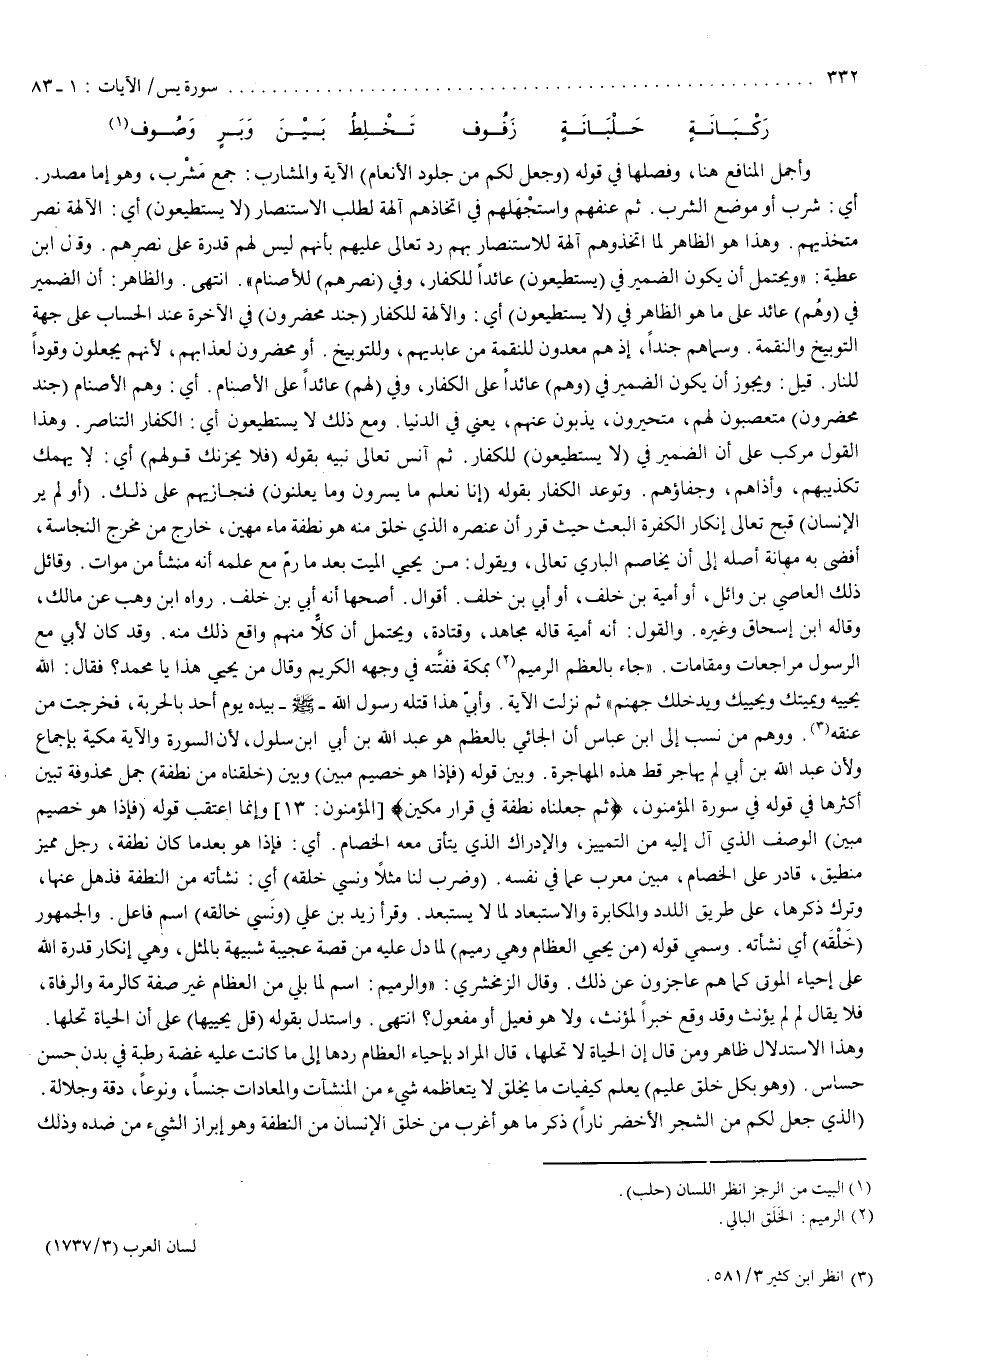 ٣٣٢ ........ سورة يس/ الآيات : ١ - ٨٣
رَكْبَانَةٍ حَلْبَانَةٍ زَفُوف تَخْلِطُ بَيْنَ وَبَرٍ وَصُوف(١)
وأجمل المنافع هنا، وفصلها في قوله (وجعل لكم من جلود الأنعام) الآية والمشارب : جمع مَشْرب، وهو إما مصدر.
أي : شرب أو موضع الشرب. ثم عنفهم واستجْهَلهم في اتخاذهم آلهة لطلب الاستنصار (لا يستطيعون) أي : الآلهة نصر
متخذيهم. وهذا هو الظاهر لما اتخذوهم آلهة للاستنصار بهم رد تعالى عليهم بأنهم ليس لهم قدرة على نصرهم. وقال ابن
عطية : «ويحتمل أن يكون الضمير في (يستطيعون) عائداً للكفار، وفي (نصرهم) للأصنام». انتهى. والظاهر: أن الضمير
في (وهُم) عائد على ما هو الظاهر في (لا يستطيعون) أي : والآلهة للكفار (جند محضرون) في الآخرة عند الحساب على جهة
التوبيخ والنقمة. وسماهم جنداً، إذ هم معدون للنقمة من عابديهم، وللتوبيخ. أو محضرون لعذابهم، لأنهم يجعلون وقوداً
للنار. قيل : ويجوز أن يكون الضمير في (وهم) عائداً على الكفار، وفي (لهم) عائداً على الأصنام. أي : وهم الأصنام (جند
محضرون) متعصبون لهم، متحيرون، يذبون عنهم، يعني في الدنيا. ومع ذلك لا يستطيعون أي : الكفار التناصر. وهذا
القول مركب على أن الضمير في (لا يستطيعون) للكفار. ثم آنس تعالى نبيه بقوله (فلا يحزنك قولهم) أي : لا يهمك
تكذيبهم، وأذاهم، وجفاؤهم. وتوعد الكفار بقوله (إنا نعلم ما يسرون وما يعلنون) فنجازيهم على ذلك. (أو لم ير
الإنسان) قبح تعالى إنكار الكفرة البعث حيث قرر أن عنصره الذي خلق منه هو نطفة ماء مهين، خارج من مخرج النجاسة،
أفضى به مهانة أصله إلى أن يخاصم الباري تعالى، ويقول: من يحيي الميت بعد ما رمّ مع علمه أنه منشأ من موات. وقائل
ذلك العاصي بن وائل، أو أمية بن خلف، أو أبي بن خلف. أقوال. أصحها أنه أبي بن خلف. رواه ابن وهب عن مالك،
وقاله ابن إسحاق وغيره. والقول: أنه أمية قاله مجاهد، وقتادة، ويحتمل أن كلًّا منهم واقع ذلك منه. وقد كان لأبي مع
الرسول مراجعات ومقامات. «جاء بالعظم الرميم(٢) بمكة ففتَّته في وجهه الكريم وقال من يحيي هذا يا محمد؟ فقال: الله
يحييه ويميتك ويحييك ويدخلك جهنم» ثم نزلت الآية. وأبيّ هذا قتله رسول الله - ﷺ - بيده يوم أحد بالحربة، فخرجت من
عنقه(٣). ووهم من نسب إلى ابن عباس أن الجائي بالعظم هو عبد الله بن أبي ابن سلول، لأن السورة والآية مكية بإجماع
ولأن عبد الله بن أبي لم يهاجر قط هذه المهاجرة. وبين قوله (فإذا هو خصيم مبين) وبين (خلقناه من نطفة) جمل محذوفة تبين
أكثرها في قوله في سورة المؤمنون، ﴿ثم جعلناه نطفة في قرار مكين﴾ [المؤمنون: ١٣] وإنما اعتقب قوله (فإذا هو خصيم
مبين) الوصف الذي آل إليه من التمييز، والإدراك الذي يتأتى معه الخصام. أي : فإذا هو بعدما كان نطفة، رجل مميز
منطيق، قادر على الخصام، مبين معرب عما في نفسه. (وضرب لنا مثلاً ونسي خلقه) أي : نشأته من النطفة فذهل عنها،
وترك ذكرها، على طريق اللدد والمكابرة والاستبعاد لما لا يستبعد. وقرأ زيد بن علي (ونَسي خالقه) اسم فاعل. والجمهور
(خَلْقَه) أي نشأته. وسمي قوله (من يحيي العظام وهي رميم) لما دل عليه من قصة عجيبة شبيهة بالمثل، وهي إنكار قدرة الله
على إحياء الموتى كما هم عاجزون عن ذلك. وقال الزمخشري : «والرميم : اسم لما بلي من العظام غير صفة كالرمة والرفاة،
فلا يقال لم لم يؤنث وقد وقع خبراً لمؤنث، ولا هو فعيل أو مفعول؟ انتهى. واستدل بقوله (قل يحييها) على أن الحياة تحلها.
وهذا الاستدلال ظاهر ومن قال إن الحياة لا تحلها، قال المراد بإحياء العظام ردها إلى ما كانت عليه غضة رطبة في بدن حسن
حساس. (وهو بكل خلق عليم) يعلم كيفيات ما يخلق لا يتعاظمه شيء من المنشآت والمعادات جنساً، ونوعاً، دقة وجلالة.
(الذي جعل لكم من الشجر الأخضر ناراً) ذكر ما هو أغرب من خلق الإنسان من النطفة وهو إبراز الشيء من ضده وذلك
(١) البيت من الرجز انظر اللسان (حلب).
(٢) الرميم : الخَلَق البالي.
لسان العرب (١٧٣٧/٣)
(٣) انظر ابن كثير ٥٨١/٣.